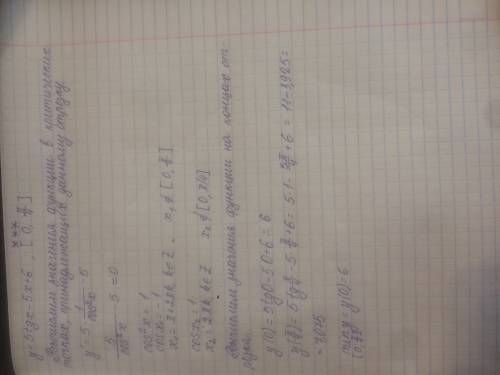 y = 5 tg x - 5x + 6, [0, π/4]
Вычислим значения функции в критических
точках, принадлежащих данному отрезку
y' = 5 · 1/cos²x - 5
5/cos²x - 5 = 0
cos²x = 1
cos x₁ = -1
x₁ = π + 2πk, k∈Z, x₁ ∉ [0, π/4]
cos x₂ = 1
x₂ = 2πk, k∈Z x₂ ∉ [0, π/4]
Вычислим значения функции на концах от-
резка
y(0) = 5 tg 0 - 5·0 + 6 = 6
y(π/4) = 5 tg π/4 - 5 π/4 + 6 = 5·1 - 5π/4 + 6 = 11 - 3,925 =
= 7,075
min y = y(0) = 6
[0, π/4]